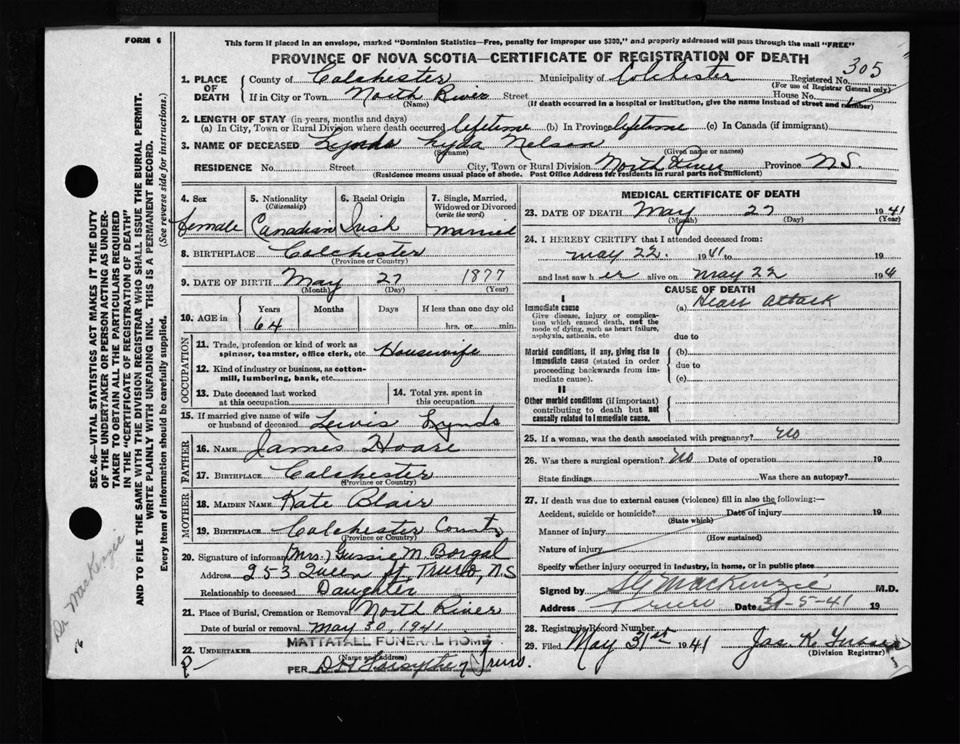 FORM 6
This form if placed in an envelope, marked "Dominion Statistics—Free, penalty for improper use $300," and properly addressed will pass through the mail "FREE"
PROVINCE OF NOVA SCOTIA—CERTIFICATE OF REGISTRATION OF DEATH
305
1. PLACE OF DEATH
County of Colchester Municipality of Colchester Registered No.
(For use of Registrar General only)
If in City or Town North River Street House No.
(Name) (If death occurred in a hospital or institution, give the name instead of street and number)
2. LENGTH OF STAY (in years, months and days)
(a) In City, Town or Rural Division where death occurred lifetime (b) In Province lifetime (c) In Canada (if immigrant)
3. NAME OF DECEASED Lynds Lyda Nelson
(Surname) (Given name or names)
RESIDENCE No. Street City, Town or Rural Division North River Province N.S.
(Residence means usual place of abode. Post Office Address for residents in rural parts not sufficient)
4. Sex
female
5. Nationality
(Citizenship)
Canadian
6. Racial Origin
Irish
7. Single, Married, Widowed or Divorced
(write the word)
married
8. BIRTHPLACE Colchester
(Province or Country)
9. DATE OF BIRTH May 27 1877
(Month) (Day) (Year)
10. AGE in
Years Months Days If less than one day old
64 hrs. or min.
OCCUPATION
11. Trade, profession or kind of work as spinner, teamster, office clerk, etc. Housewife
12. Kind of industry or business, as cotton-mill, lumbering, bank, etc.
13. Date deceased last worked at this occupation
14. Total yrs. spent in this occupation
15. If married give name of wife or husband of deceased Lewis Lynds
FATHER
16. NAME James Hoare
17. BIRTHPLACE Colchester
(Province or Country)
MOTHER
18. MAIDEN NAME Kate Blair
19. BIRTHPLACE Colchester County
(Province or Country)
20. Signature of informant (Mrs.) Gussie M. Borgal
Address 253 Queen St, Truro, N.S
Relationship to deceased Daughter
21. Place of Burial, Cremation or Removal North River
Date of burial or removal May 30, 1941
MATTATALL FUNERAL HOME
22. UNDERTAKER
(Name and address)
PER Forsythe, Truro.
MEDICAL CERTIFICATE OF DEATH
23. DATE OF DEATH May 27 1941
(Month) (Day) (Year)
24. I HEREBY CERTIFY that I attended deceased from:
May 22. 1941 to
and last saw her alive on May 22 194
CAUSE OF DEATH
I
Immediate cause (a) Heart attack
Give disease, injury or complication which caused death, not the mode of dying, such as heart failure, asphyxia, asthenia, etc
due to
Morbid conditions, if any, giving rise to immediate cause (stated in order proceeding backwards from immediate cause).
(b)
due to
(c)
II
Other morbid conditions (if important) contributing to death but not causally related to immediate cause.
25. If a woman, was the death associated with pregnancy? No
26. Was there a surgical operation? No Date of operation 19
State findings Was there an autopsy?
27. If death was due to external causes (violence) fill in also the following:—
Accident, suicide or homicide? Date of injury 19
(State which)
Manner of injury
(How sustained)
Nature of injury
Specify whether injury occurred in industry, in home, or in public place
Signed by MacKenzie M.D.
Address Truro Date 31-5-41 19
28. Registrar's Record Number
29. Filed May 31st 1941 Jas. K.
(Division Registrar)
SEC. 46—VITAL STATISTICS ACT MAKES IT THE DUTY OF THE UNDERTAKER OR PERSON ACTING AS UNDERTAKER TO OBTAIN ALL THE PARTICULARS REQUIRED IN THE "CERTIFICATE OF REGISTRATION OF DEATH"
AND TO FILE THE SAME WITH THE DIVISION REGISTRAR WHO SHALL ISSUE THE BURIAL PERMIT.
WRITE PLAINLY WITH UNFADING INK. THIS IS A PERMANENT RECORD.
Every item of information should be carefully supplied. (See reverse side for instructions.)
Dr MacKenzie